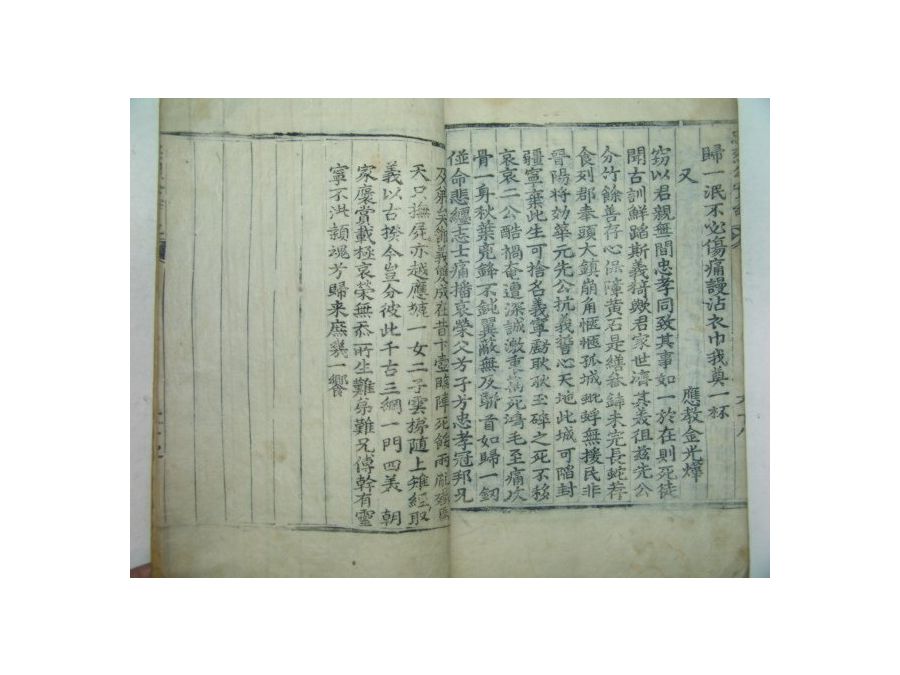 歸一泯不必傷痛謾沾衣巾我奠一杯
又 應教金光燁
窃以君親無間忠孝同致其事如一於在則死徒
聞古訓鮮蹈斯義猗歟君家世濟其義徂玆先公
分竹餘善存心保障黃石是繕發鋒未完長蛇荐
食列郡奉頭大鎮崩角慪慪孤城蚍蜉無援民非
晉陽將効華元先公抗義誓心天地此城可陷封
疆寧棄此生可捨名義寧虧耿耿玉碎之死不移
哀哀二公酷禍奄遭深誠激重爲死鴻毛至痛次
骨一身秋葉兇鋒不鈍翼蔽無及駢首如歸一釰
倂命悲纏志士痛擋哀榮父芳子芳忠孝冠邦兄
死餘雨
天只撫屍亦越應墟一女二子雲搒隨上雉經取
義以古揆今豈分彼此千古三綱一門四義 朝
家褒賞載極哀榮無忝所生難弟難兄傅幹有靈
寧不洪顙魂芳歸来庶幾一饗